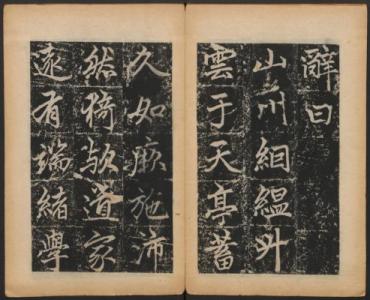 辭曰
山川絪緼升
雲于天亭蓄
久如厥施沛
然猗歟道家
遠有端緒學